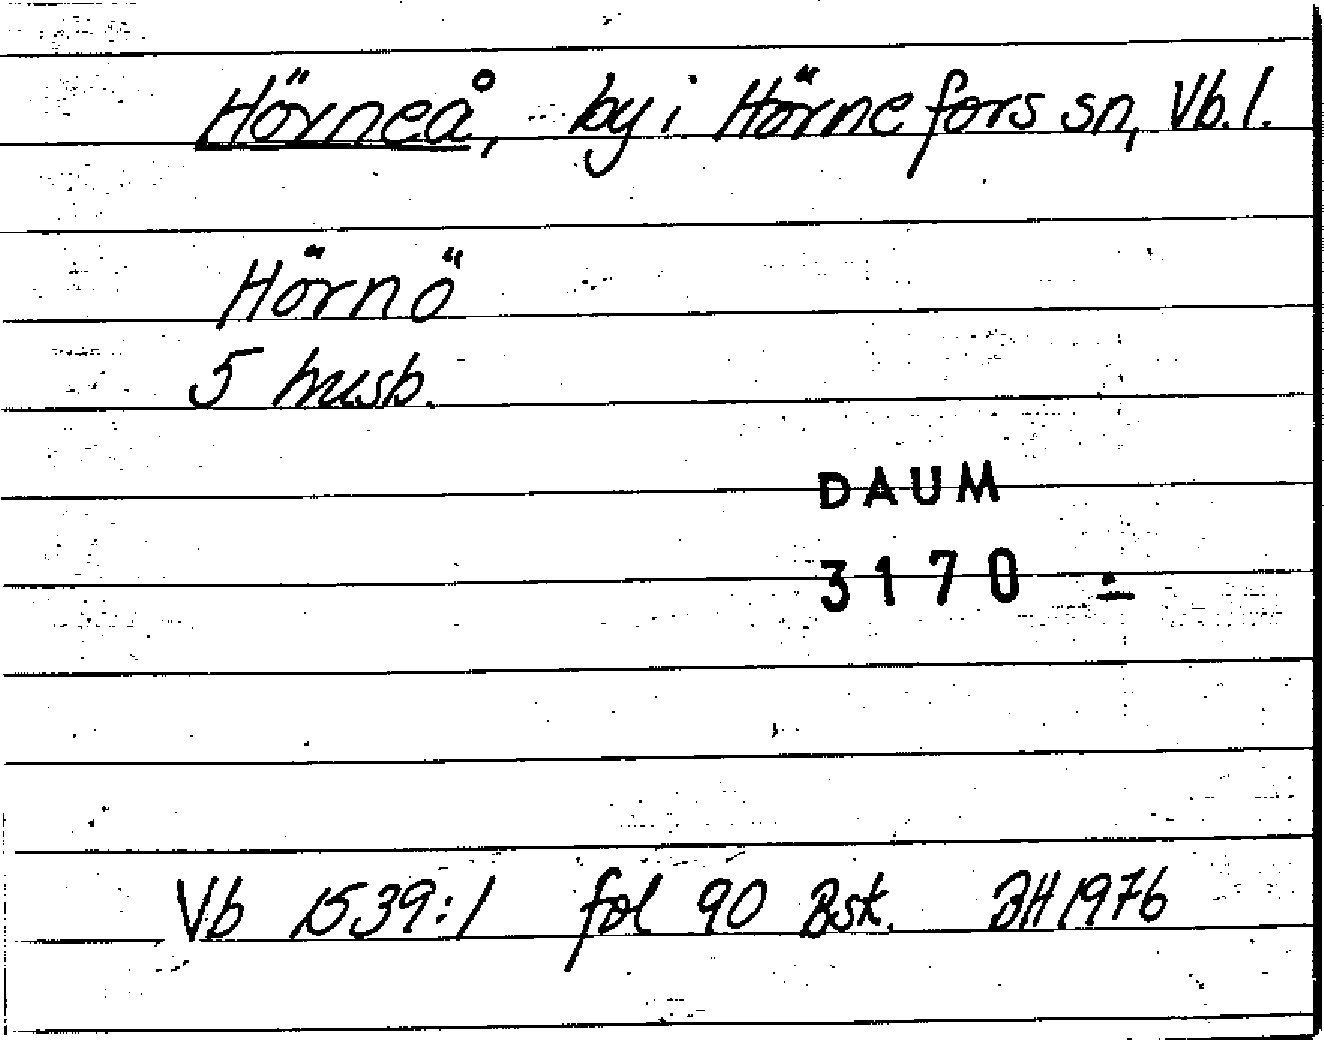 Hörneå, by i Hörnefors sn, Vb. l.
Hörnö
5 husb.
DAUM
3170 -
Vb 1539:1 fol 90 Bsk. BH 1976